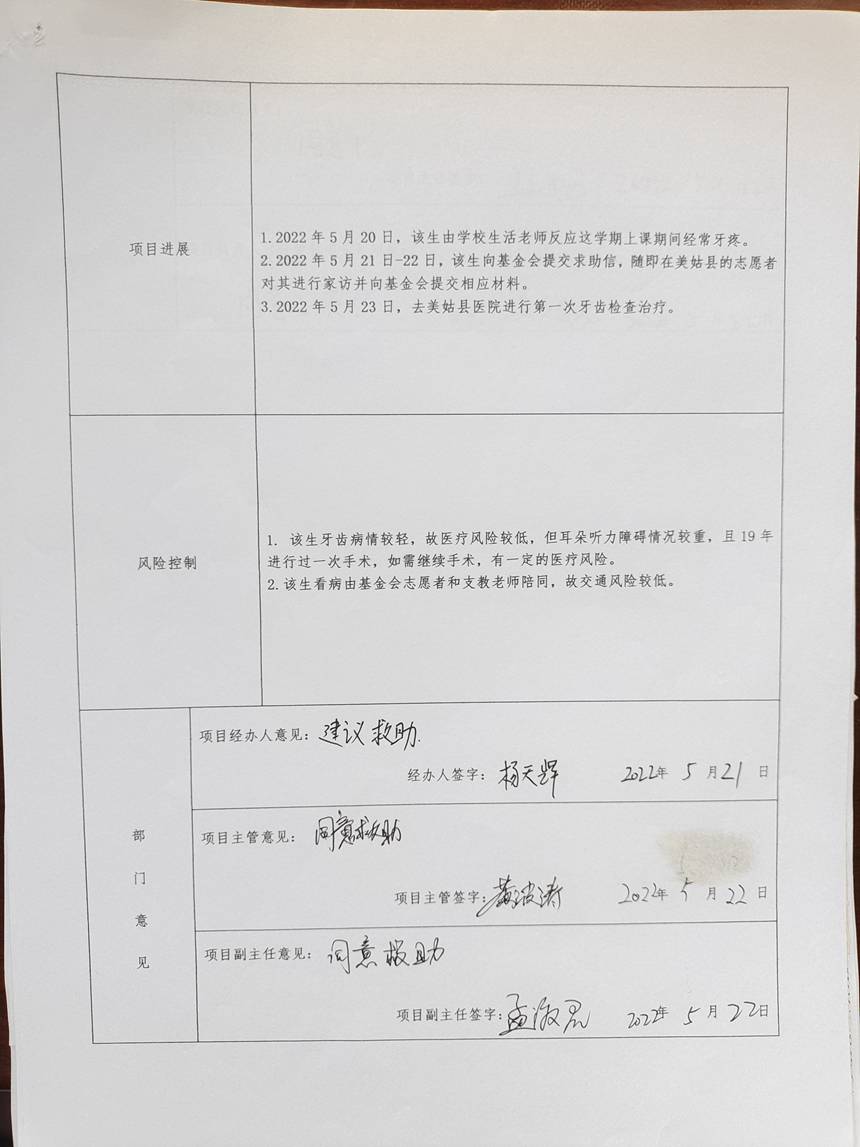 项目进展
1.2022年5月20日，该生由学校生活老师反应这学期上课期间经常牙疼。
2.2022年5月21日-22日，该生向基金会提交求助信，随即在美姑县的志愿者
对其进行家访并向基金会提交相应材料。
3.2022年5月23日，去美姑县医院进行第一次牙齿检查治疗。
风险控制
1. 该生牙齿病情较轻，故医疗风险较低，但耳朵听力障碍情况较重，且19年
进行过一次手术，如需继续手术，有一定的医疗风险。
2.该生看病由基金会志愿者和支教老师陪同，故交通风险较低。
部门意见
项目经办人意见：建议救助.
经办人签字：杨天辉 2022年5月21日
项目主管意见：同意救助
项目主管签字：黄波涛 2022年5月22日
项目副主任意见：同意救助
项目副主任签字：孟 2022年5月22日